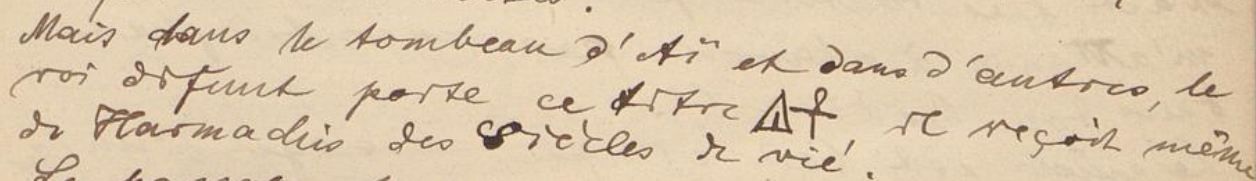 Mais dans le tombeau d'Aï et dans d'autres, le
roi défunt porte ce titre 𓏙𓋹, il reçoit même
de Harmachis des siècles de vie.